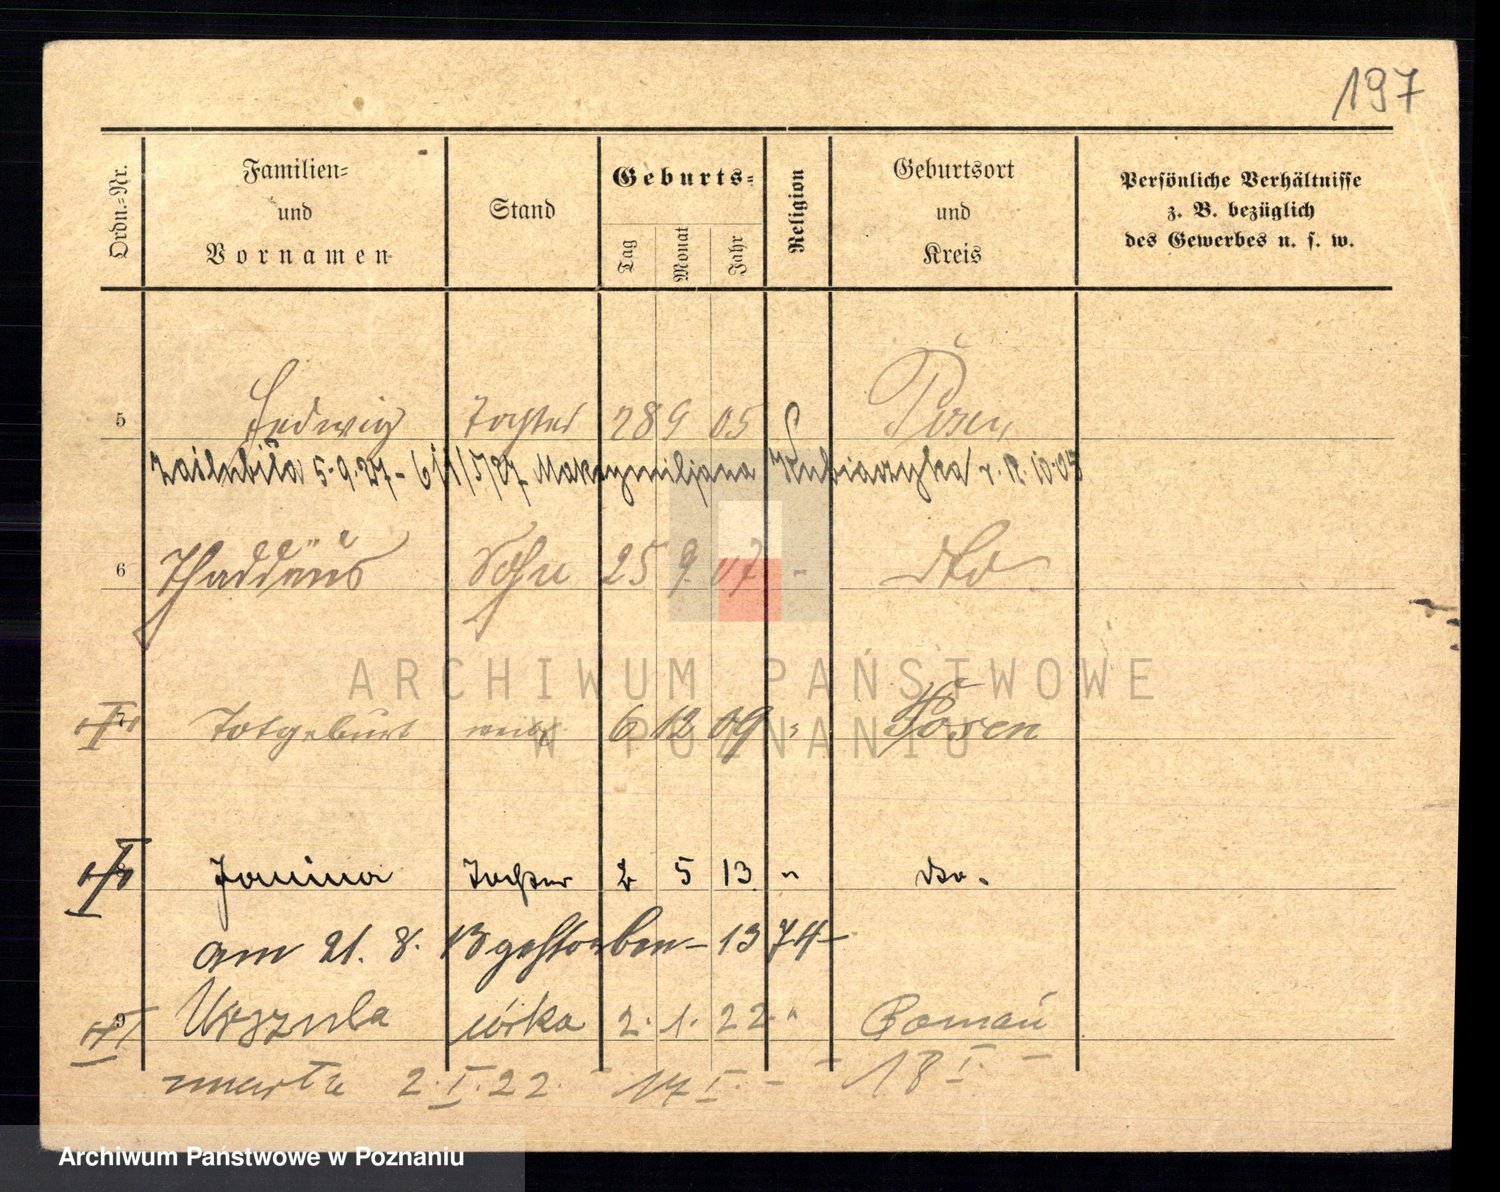 197
Ordn.=Nr.
Familien=
und
Vornamen
Stand
Geburts=
Tag
Monat
Jahr
Religion
Geburtsort
und
Kreis
Persönliche Verhältnisse
z. B. bezüglich
des Gewerbes u. s. w.
5 Hedwig Tochter 28 9 05 Posen
Zaślubiła 5.9.27 - Maksymiljana Kubiaczyka
6 Thaddäus Sohn 25 9 07 - dto
7 Totgeburt 6 12 09 " Posen
8 Janina Tochter 2 5 13 " dto.
am 21. 8. 13 gestorben - 1374 -
9 Urszula córka 2. 1. 22 " Poznań
zmarła 2. I. 22. 17 I. - 18 I. -
ARCHIWUM PAŃSTWOWE
W POZNANIU
Archiwum Państwowe w Poznaniu